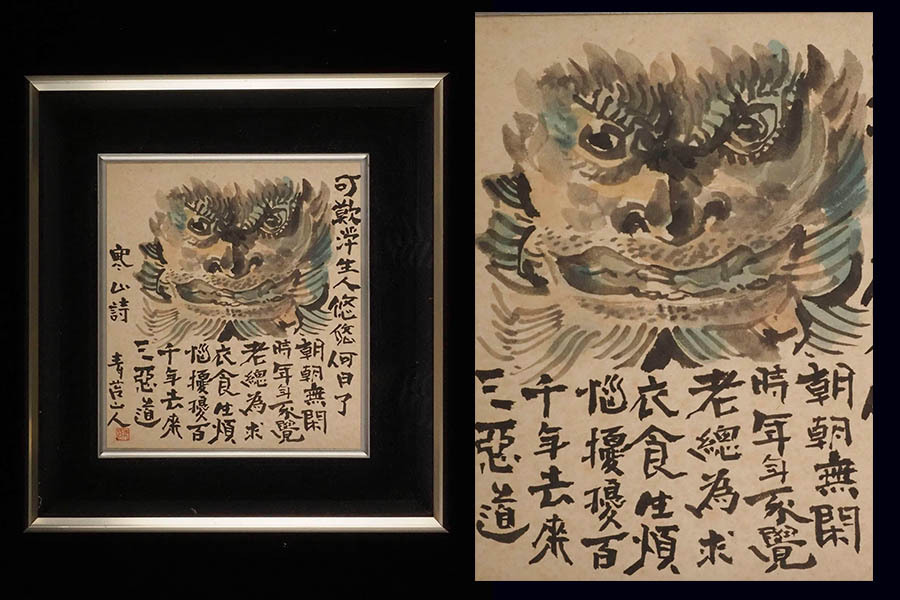 可歎浮生人悠悠何日了
朝朝無閑
時年年不覺
老總為求
衣食生煩
惱擾擾百
千年去来
三惡道
寒山詩
青苔山人
朝朝無閑
時年年不覺
老總為求
衣食生煩
惱擾擾百
千年去来
三惡道